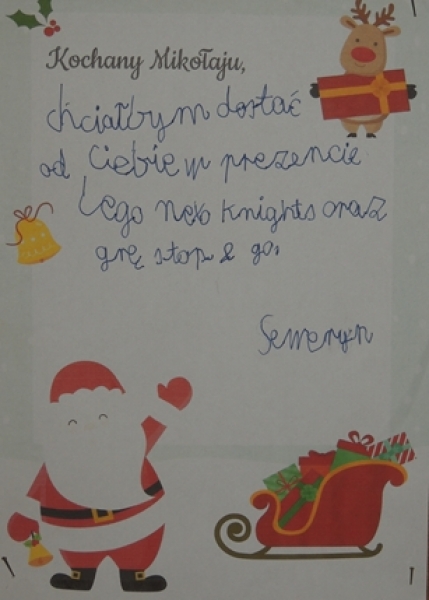 Kochany Mikołaju,
chciałbym dostać
od Ciebie w prezencie
Lego Nexo Knights oraz
grę stop & go.
Seweryn